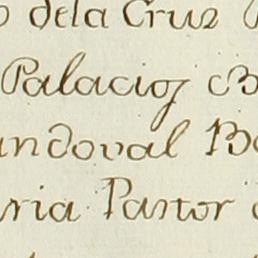 o dela Cruz
Palacioz B
andoval Ba
aria Pastor